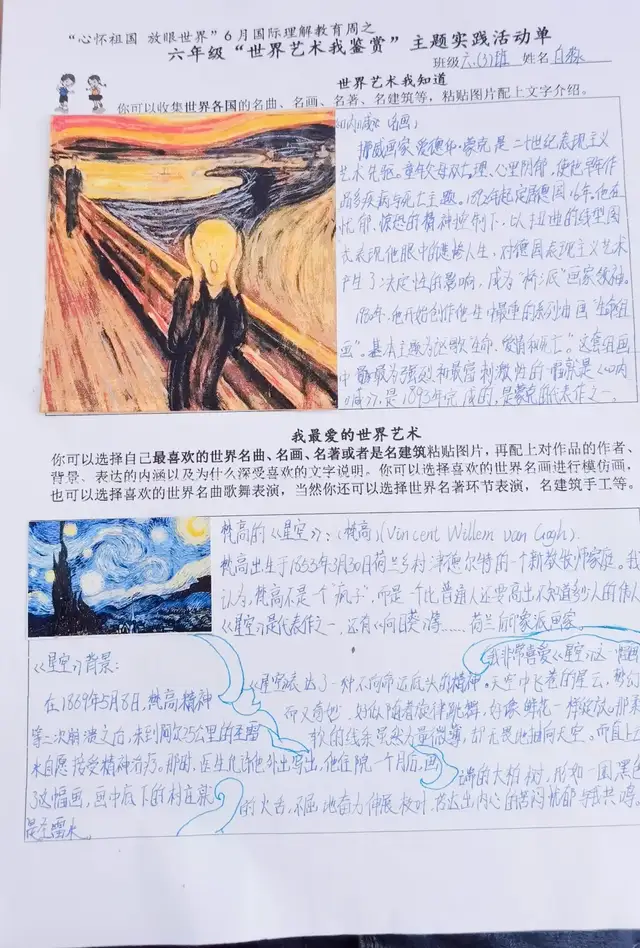 “心怀祖国 放眼世界”6月国际理解教育周之
六年级“世界艺术我鉴赏”主题实践活动单
班级 六.(3)班 姓名
世界艺术我知道
你可以收集世界各国的名曲、名画、名著、名建筑等，粘贴图片配上文字介绍。
挪威画家爱德华·蒙克是二十世纪表现主义
艺术先驱。童年父母双亡
品多疾病与死亡主题。1892年起定居德国16年。他在
忧郁、惊恐的精神控制下，以扭曲的线型图
式表现他眼中的悲惨人生，对德国表现主义艺术
产生了决定性的影响，成为“桥派”画家领袖。
他开始创作他生中最重的系列油画“生命组
画”。基本主题为讴歌“生命、爱情和死亡”。这套组画
中最为强烈和最富刺激性的一幅就是《呐
喊》，是1893年完成的，是蒙克的代表作之一。
我最爱的世界艺术
你可以选择自己最喜欢的世界名曲、名画、名著或者是名建筑粘贴图片，再配上对作品的作者、
背景、表达的内涵以及为什么深受喜欢的文字说明。你可以选择喜欢的世界名画进行模仿画，
也可以选择喜欢的世界名曲歌舞表演，当然你还可以选择世界名著环节表演，名建筑手工等。
梵高的《星空》：（梵高）(Vincent Willem van Gogh).
梵高出生于1853年3月30日荷兰乡村津德尔特的一个新教牧师家庭。我
认为，梵高不是个“疯子”，而是一个比普通人还要高出不知道多少人的伟人
《星空》是代表作之一，还有《向日葵》等……荷兰后印象派画家。
我非常喜爱《星空》这一幅画
《星空》背景：
《星空》表达了一种不向命运低头的精神。天空中飞卷的星云，梦幻
在1889年5月8日，梵高精神
而又奇妙，好似随着旋律跳舞，好像鲜花一样绽放。那柔
第二次崩溃之后，来到阿尔25公里的圣雷
软的线条虽然力量微薄，却无畏地抽向天空。而直上云
米自愿接受精神治疗。那时，医生允许他外出写生，他住院一个月后，画
端的大柏树，形如一团黑色
了这幅画，画中底下的村庄就
的火舌，不屈地奋力伸展枝叶，表达出内心的苦闷忧郁与我共鸣
是圣雷米。